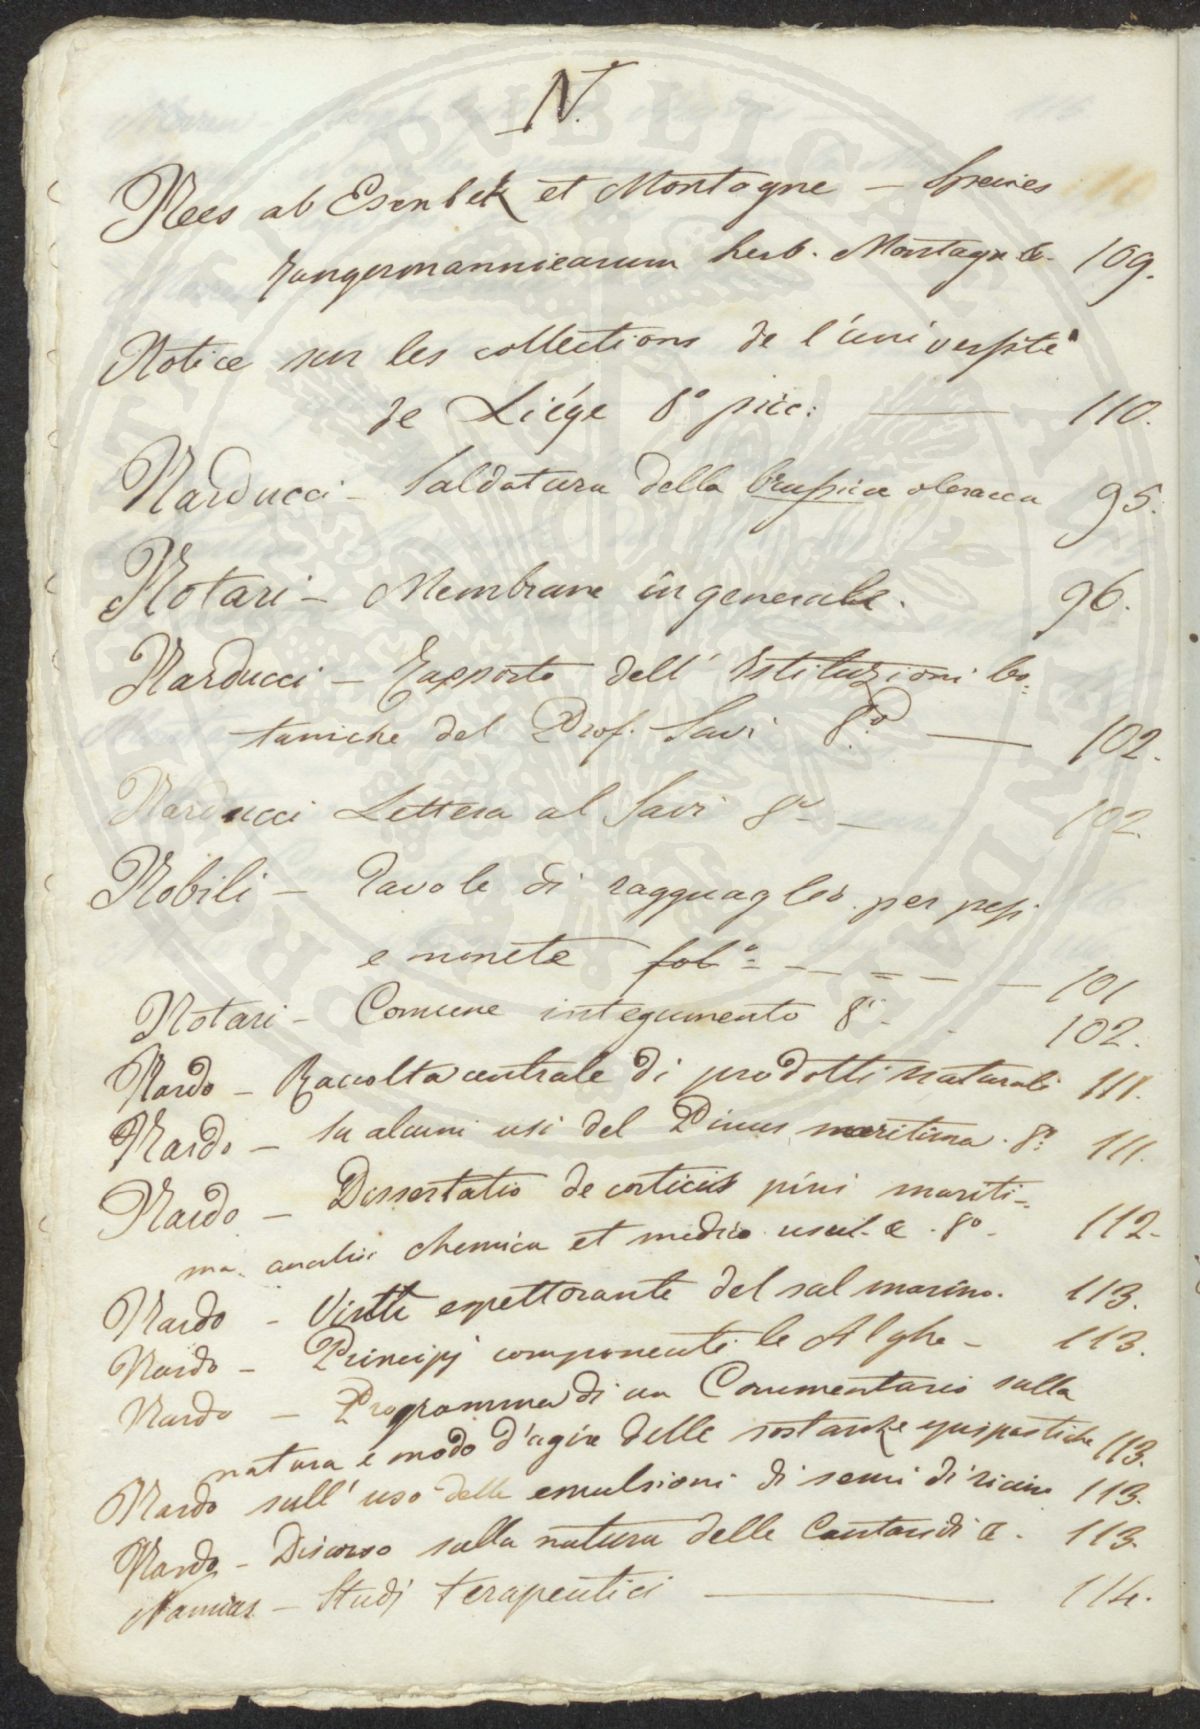 N.
Nees ab Esenbek et Montagne — Species
Jungermanniearum herb. Montagn &. 109.
Notice sur les collections de l'université
de Liége 8º picc: 110.
Narducci — Saldatura della brassica oleracea 95.
Notari — Membrane in generale. 96.
Narducci — Rapporto dell' Istituzioni bo-
taniche del Prof. Savi 8º — 102.
Narducci Lettera al Savi 8º — 102.
Nobili — Tavole di ragguaglio per pesi
e monete folº — 101
Notari — Comune integumento 8º 102.
Nardo — Raccolta centrale di prodotti naturali 111.
Nardo — Su alcuni usi del Pinus maritima. 8º 111.
Nardo — Dissertatio de corticis pini mariti-
ma. analisi chemica et medico usu &. 8º. 112.
Nardo — Virtù espettorante del sal marino. 113.
Nardo — Principj componenti le Alghe — 113.
Nardo — Programma di un Commentario sulla
natura e modo d'agire delle sostanze epispastiche 113.
Nardo sull' uso delle emulsioni di semi di ricino 113.
Nardo — Discorso sulla natura delle Cantaridi &. 113.
Namias — Studj terapeutici — 114.
PUBLICAE